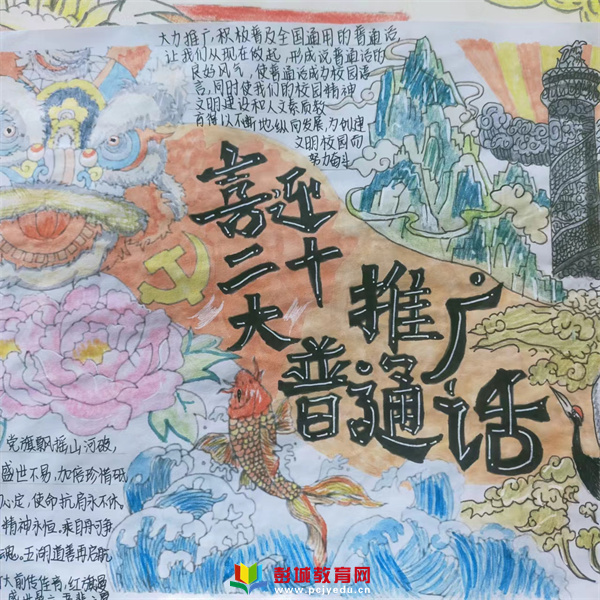 大力推广,积极普及全国通用的普通话
让我们从现在做起,形成说普通话的
良好风气,使普通话成为校园语
言,同时使我们的校园精神
文明建设和人文素质教
育得以不断地纵向发展,为创建
文明校园而
努力奋斗
喜迎
二十
大
推广
普通话
党旗飘摇山河破,
盛世不易,加倍珍惜砥
心定,使命抗肩永不休。
精神永恒,乘自舟争
魂。
再启航
红旗
彭城教育网
www.pcjyedu.cn